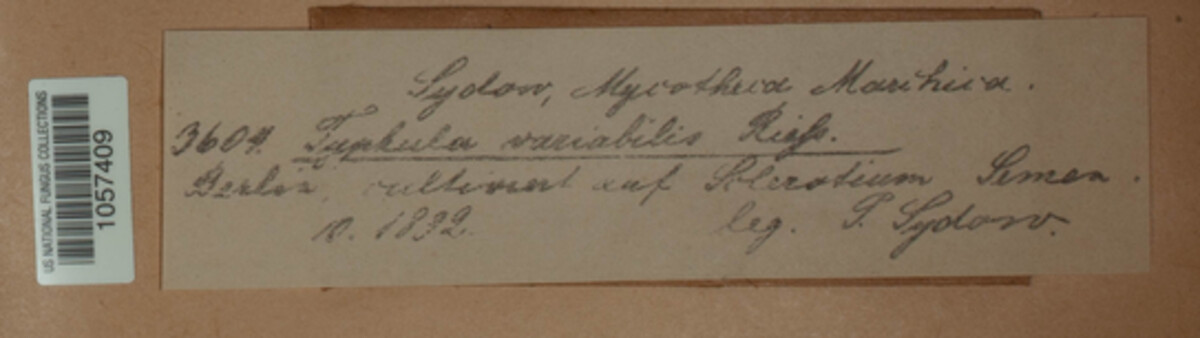 US NATIONAL FUNGUS COLLECTIONS
1057409
Sydow, Mycotheca Marchica.
3604. Typhula variabilis Riess.
Berlin, cultivirt auf Sclerotium Semen.
10. 1892.
leg. P. Sydow.